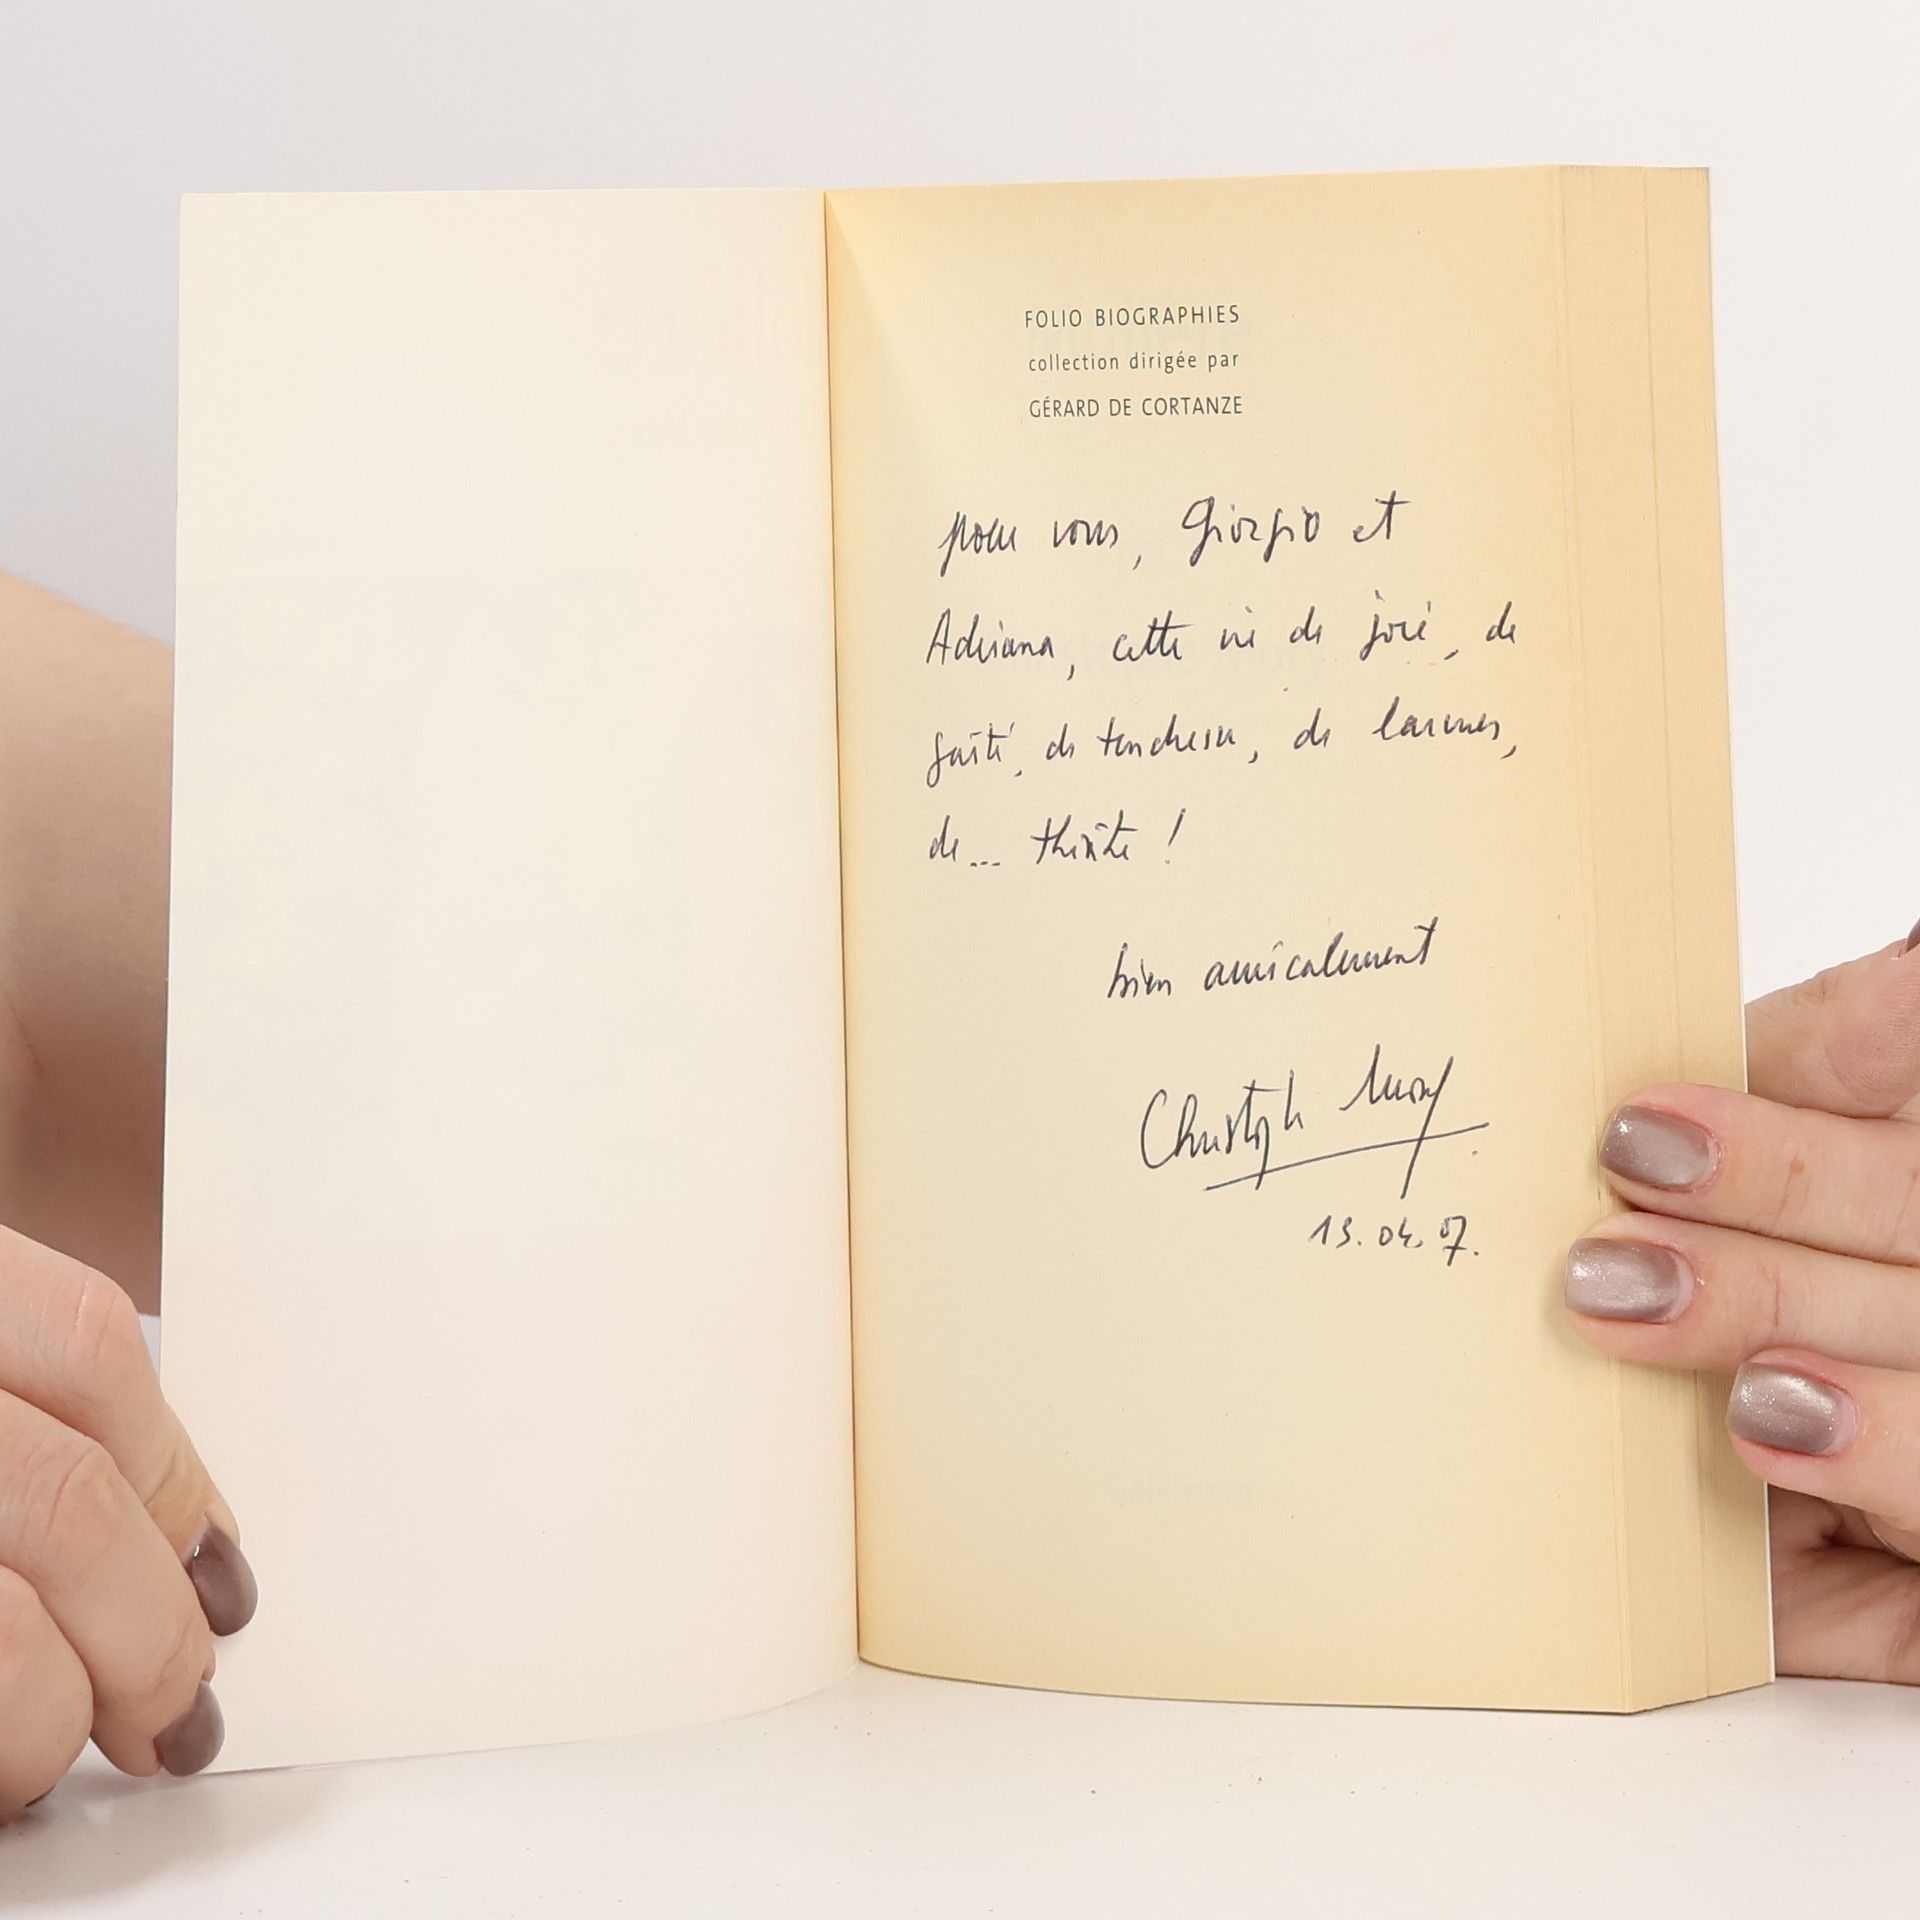 FOLIO BIOGRAPHIES
collection dirigée par
GÉRARD DE CORTANZE
pour vous, Giorgio et
Adriana, cette vie de joie, de
gaîté, de tendresse, de larmes,
de... théâtre !
bien amicalement
Christophe Mory
13.04.07.